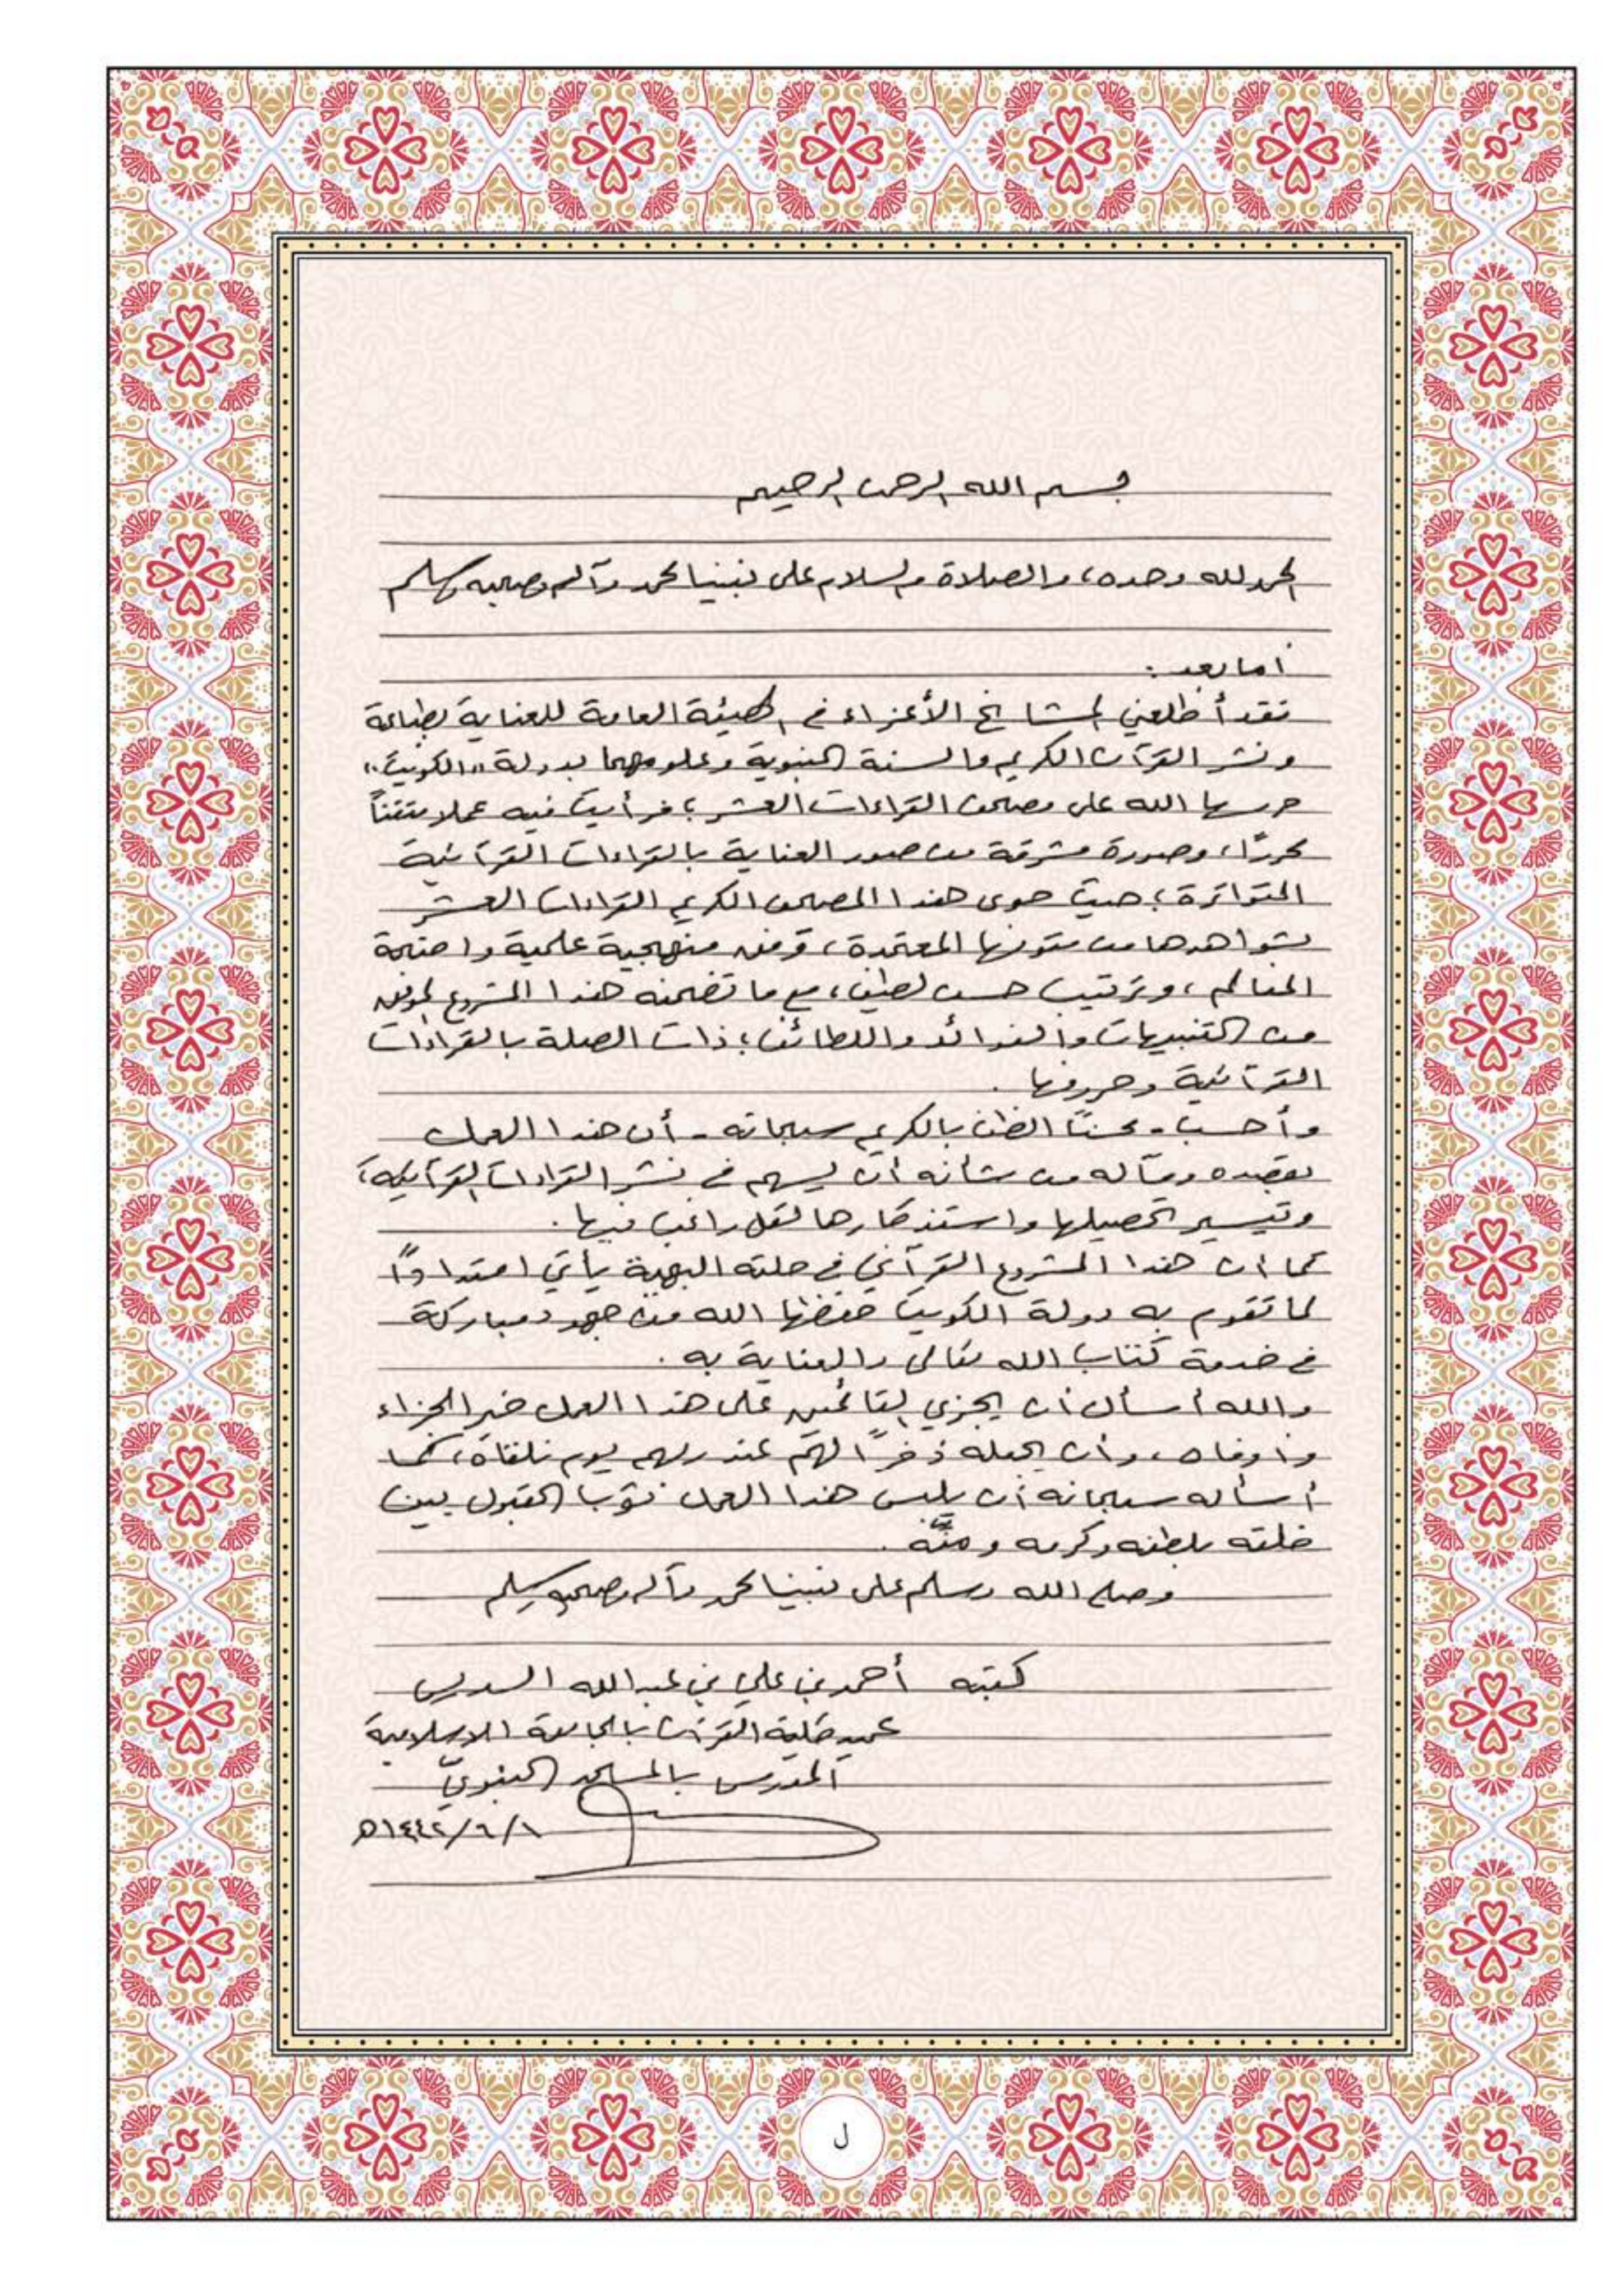 بسم الله الرحمن الرحيم
الحمد لله وحده، والصلاة والسلام على نبينا محمد وآله وصحبه وسلم
أما بعد:
فقد أطلعني المشايخ الأعزاء في الهيئة العامة للعناية بطباعة
ونشر القرآن الكريم والسنة النبوية وعلومهما بدولة "الكويت"
حرسها الله على مصحف القراءات العشر؛ فرأيت فيه عملا متقناً
محررًا، وصورة مشرقة من صور العناية بالقراءات القرآنية
المتواترة؛ حيث حوى هذا المصحف الكريم القراءات العشر
بشواهدها من متونها المعتمدة، وفق منهجية علمية واضحة
المعالم، وترتيب حسن لطيف، مع ما تضمنه هذا المشروع الموفق
من التنبيهات والفوائد واللطائف؛ ذات الصلة بالقراءات
القرآنية وحروفها.
وأحسب - محسنًا الظن بالكريم سبحانه - أن هذا العمل
بقصده ومآله من شأنه أن يسهم في نشر القراءات القرآنية،
وتيسير تحصيلها واستذكارها لكل راغب فيها.
كما أن هذا المشروع القرآني في حلته البهية يأتي امتدادًا
لما تقوم به دولة الكويت حفظها الله من جهود مباركة
في خدمة كتاب الله تعالى والعناية به.
والله أسأل أن يجزي القائمين على هذا العمل خير الجزاء
وأوفاه، وأن يجعله ذخرًا لهم عند ربهم يوم نلقاه، كما
أسأله سبحانه أن يلبس هذا العمل ثوب القبول بين
خلقه بلطفه وكرمه ومنّه.
وصلى الله وسلم على نبينا محمد وآله وصحبه وسلم
كتبه أحمد بن علي بن عبدالله السديس
عميد كلية القرآن بالجامعة الاسلامية
المدرس بالمسجد النبويّ
١/٦/١٤٤٢ه
ل